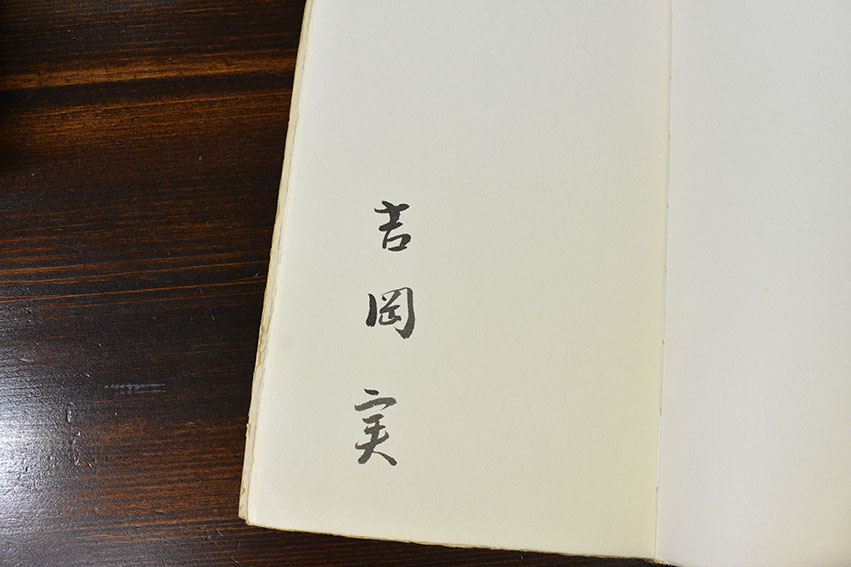 吉岡実